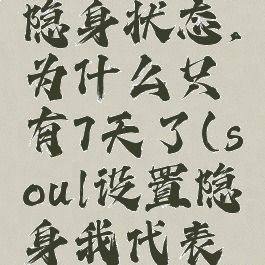 隐身状态,
为什么只
有7天了(s
oul设置隐
身我代表